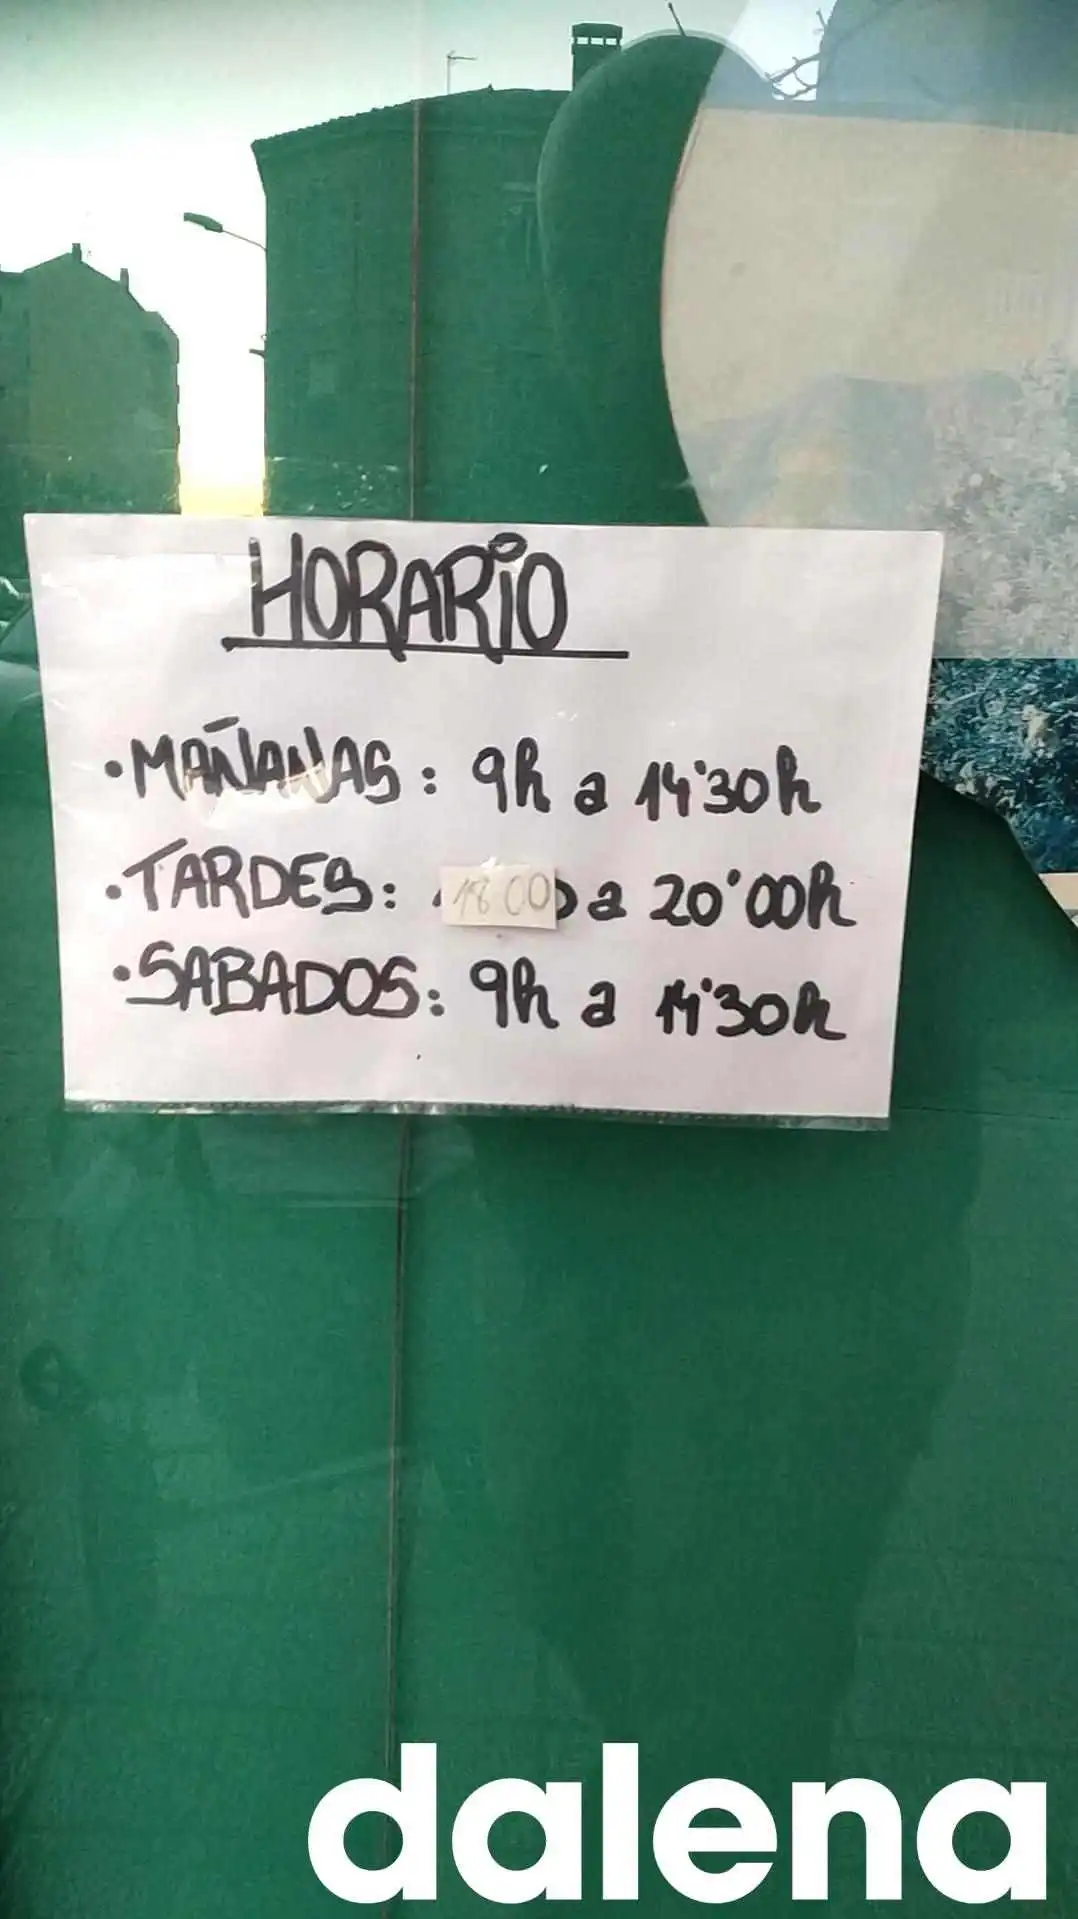 HORARIO
• MAÑANAS: 9h a 14'30h
• TARDES: 18 00 a 20'00h
• SABADOS: 9h a 14'30h
dalena